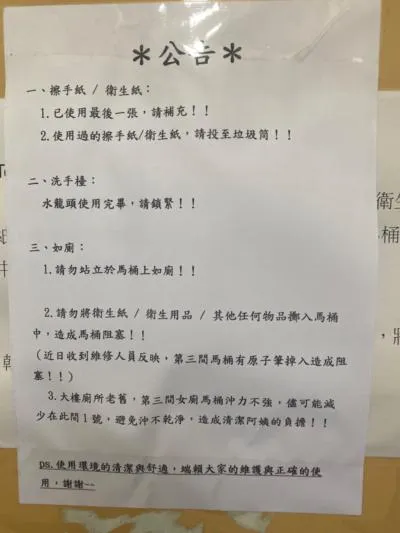 ＊公告＊
一、擦手紙 / 衛生紙：
1.已使用最後一張，請補充！！
2.使用過的擦手紙/衛生紙，請投至垃圾筒！！
二、洗手檯：
水龍頭使用完畢，請鎖緊！！
三、如廁：
1.請勿站立於馬桶上如廁！！
2.請勿將衛生紙 / 衛生用品 / 其他任何物品擲入馬桶
中，造成馬桶阻塞！！
(近日收到維修人員反映，第三間馬桶有原子筆掉入造成阻
塞！！)
3.大樓廁所老舊，第三間女廁馬桶沖力不強，儘可能減
少在此間1號，避免沖不乾淨，造成清潔阿姨的負擔！！
ps.使用環境的清潔與舒適，端賴大家的維護與正確的使
用，謝謝~~
衛生
桶